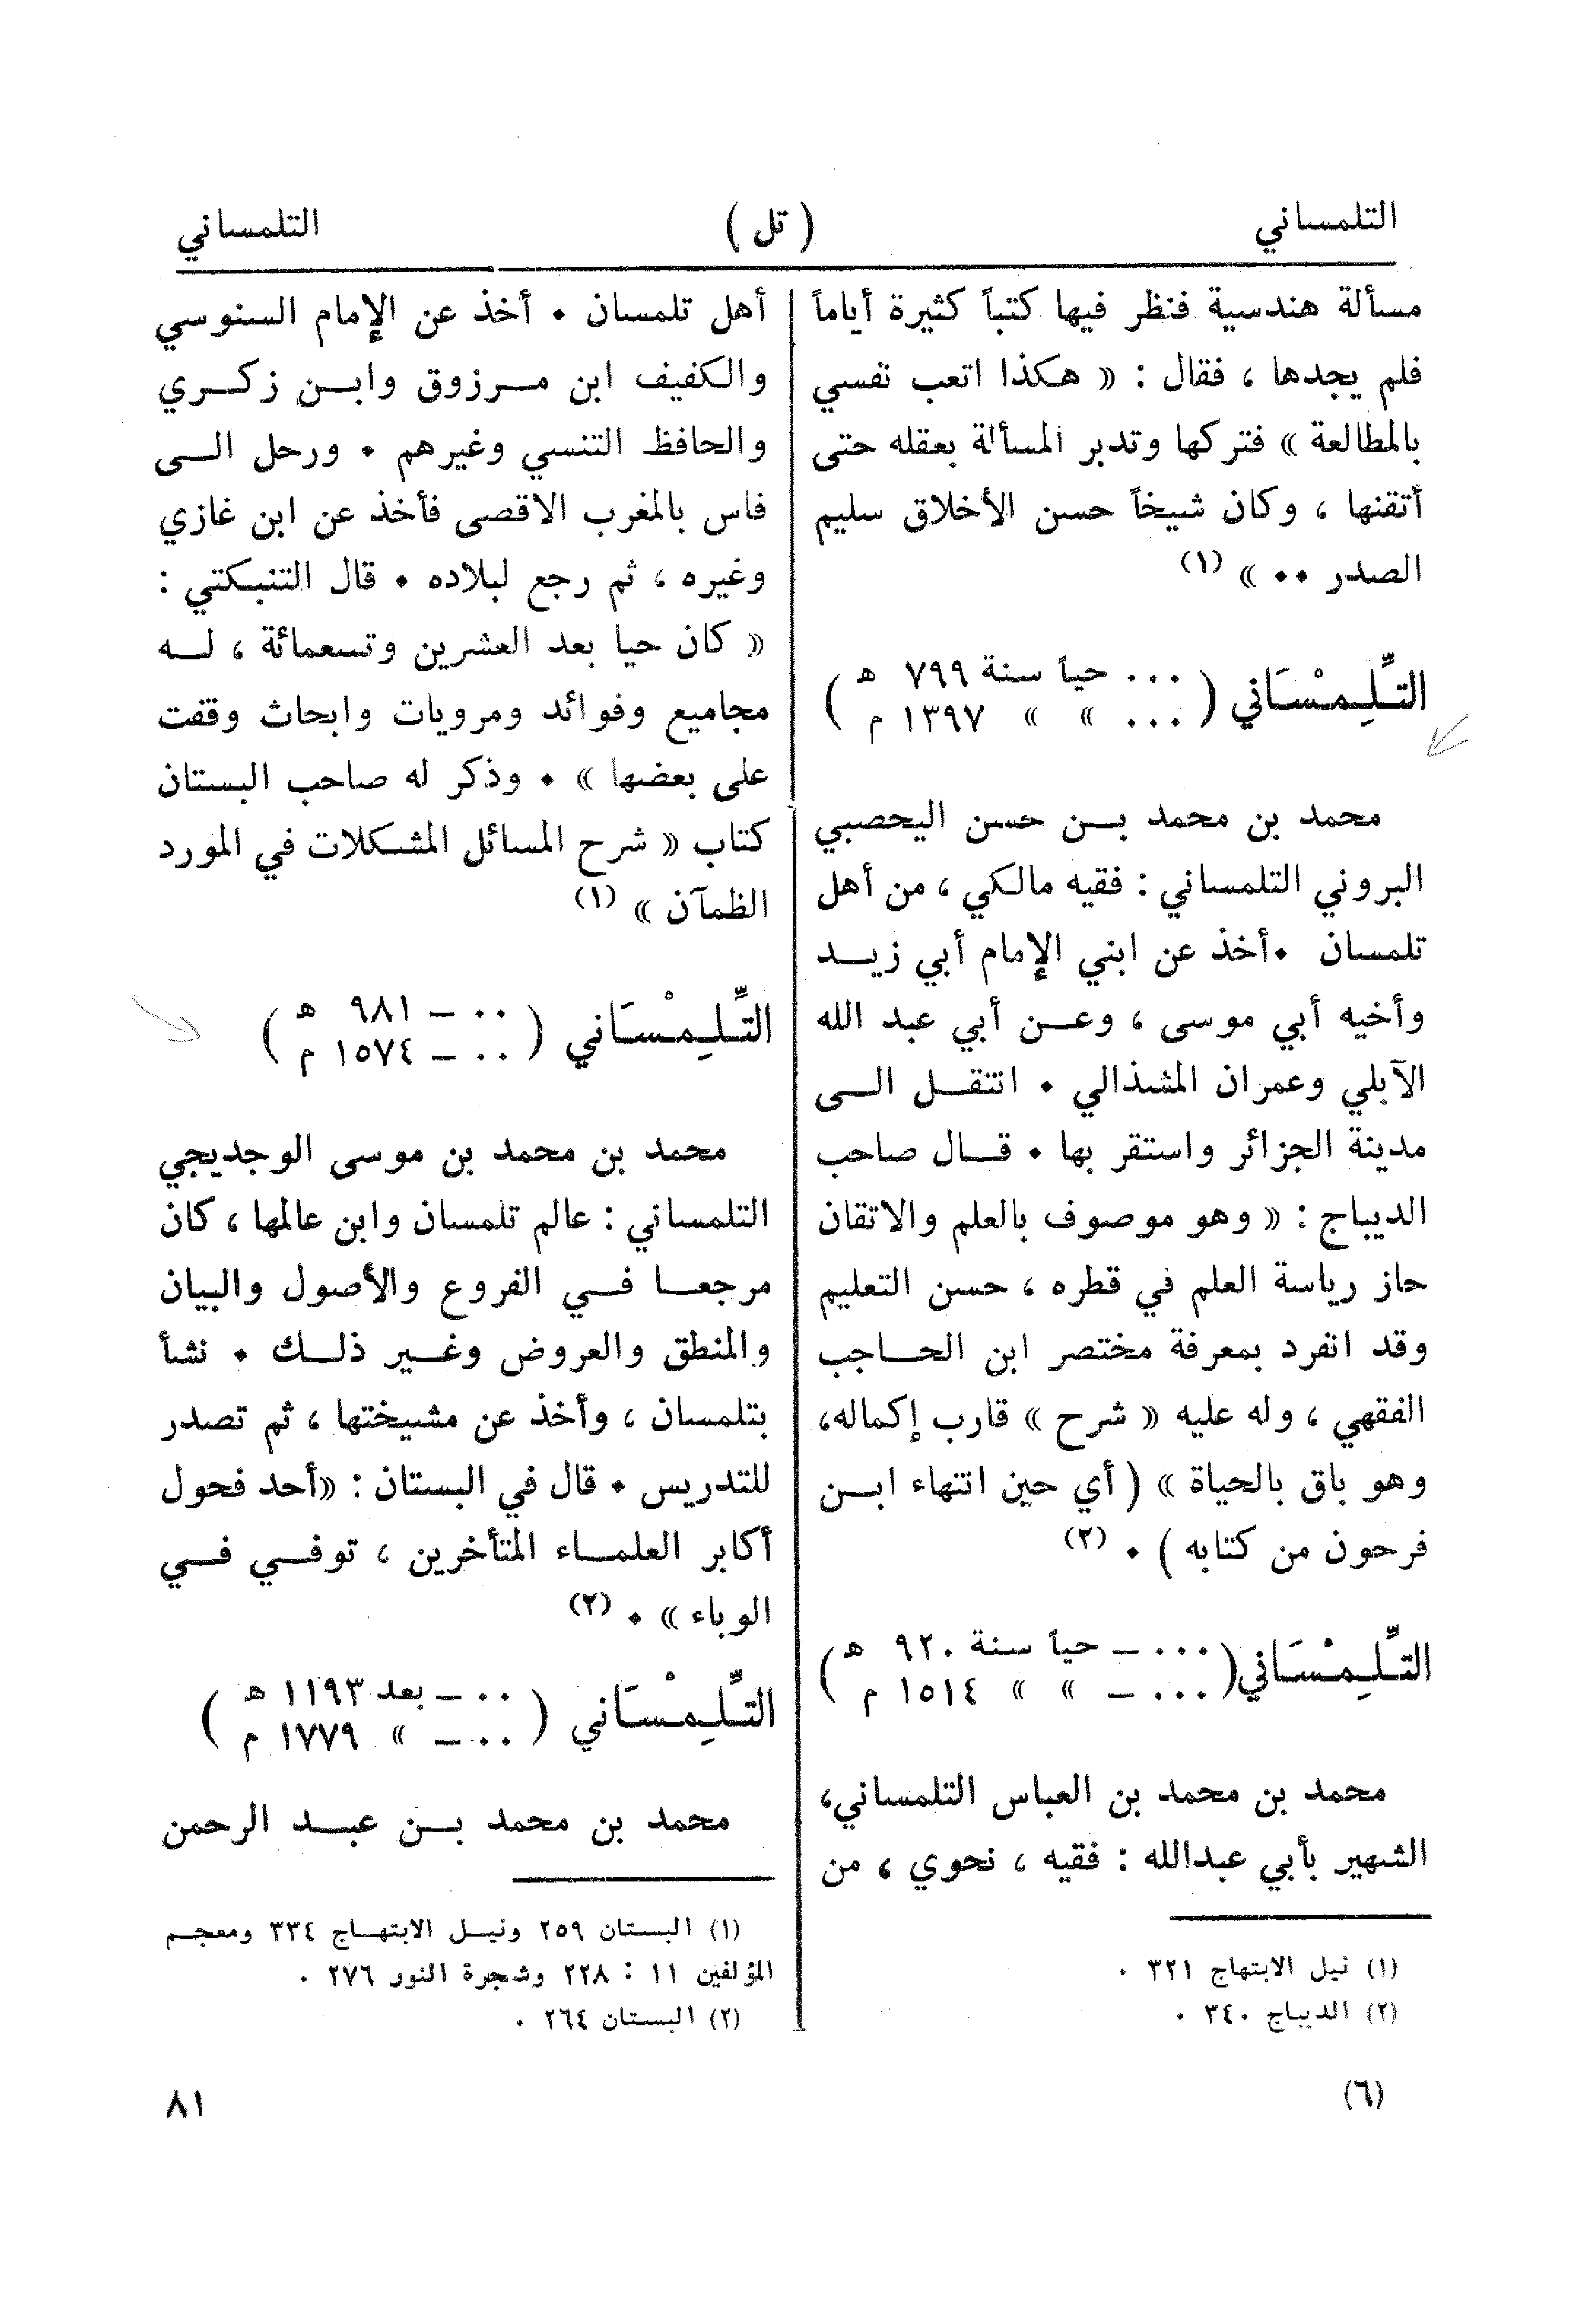 التلمساني ( تل ) التلمساني
مسألة هندسية فنظر فيها كتباً كثيرة أياماً
فلم يجدها ، فقال : « هكذا اتعب نفسي
بالمطالعة » فتركها وتدبر المسألة بعقله حتى
أتقنها ، وكان شيخاً حسن الأخلاق سليم
الصدر ٠٠ » (١)
التِّلِمْسَاني ( ٠٠٠ حياً سنة ٧٩٩ هـ
٠٠٠ » » ١٣٩٧ م )
محمد بن محمد بـن حسن اليحصبي
البروني التلمساني : فقيه مالكي ، من أهل
تلمسان ٠أخذ عن ابني الإمام أبي زيـد
وأخيه أبي موسى ، وعـن أبي عبد الله
الآبلي وعمران المشذالي ٠ انتقـل الـى
مدينة الجزائر واستقر بها ٠ قـال صاحب
الديباج : « وهو موصوف بالعلم والاتقان
حاز رياسة العلم في قطره ، حسن التعليم
وقد انفرد بمعرفة مختصر ابن الحـاجب
الفقهي ، وله عليه « شرح » قارب إكماله،
وهو باق بالحياة » ( أي حين انتهاء ابـن
فرحون من كتابه ) ٠ (٢)
التِّلِمْسَاني( ٠٠٠ – حياً سنة ٩٢٠ هـ
٠٠٠ – » » ١٥١٤ م )
محمد بن محمد بن العباس التلمساني،
الشهير بأبي عبدالله : فقيه ، نحوي ، من
(١) نيل الابتهاج ٣٢١ ٠
(٢) الديباج ٣٤٠ ٠
أهل تلمسان ٠ أخذ عن الإمام السنوسي
والكفيف ابن مـرزوق وابـن زكـري
والحافظ التنسي وغيرهم ٠ ورحل الـى
فاس بالمغرب الاقصى فأخذ عن ابن غازي
وغيره ، ثم رجع لبلاده ٠ قال التنبكتي :
« كان حيا بعد العشرين وتسعمائة ، لـه
مجاميع وفوائد ومرويات وابحاث وقفت
على بعضها » ٠ وذكر له صاحب البستان
كتاب « شرح المسائل المشكلات في المورد
الظمآن » (١)
التِّلِمْسَاني ( ٠٠ – ٩٨١ هـ
٠٠ – ١٥٧٤ م )
محمد بن محمد بن موسى الوجديجي
التلمساني : عالم تلمسان وابن عالمها ، كان
مرجعـا فـي الفروع والأصول والبيان
والمنطق والعروض وغـير ذلـك ٠ نشأ
بتلمسان ، وأخذ عن مشيختها ، ثم تصدر
للتدريس ٠ قال في البستان : «أحد فحول
أكابر العلمـاء المتأخرين ، توفـي فـي
الوباء » ٠ (٢)
التِّلِمْسَاني ( ٠٠ – بعد ١١٩٣ هـ
٠٠ – » ١٧٧٩ م )
محمد بن محمد بـن عبـد الرحمن
(١) البستان ٢٥٩ ونيـل الابتهـاج ٣٣٤ ومعجـم
المؤلفين ١١ : ٢٢٨ وشجرة النور ٢٧٦ ٠
(٢) البستان ٢٦٤ ٠
(٦) ٨١